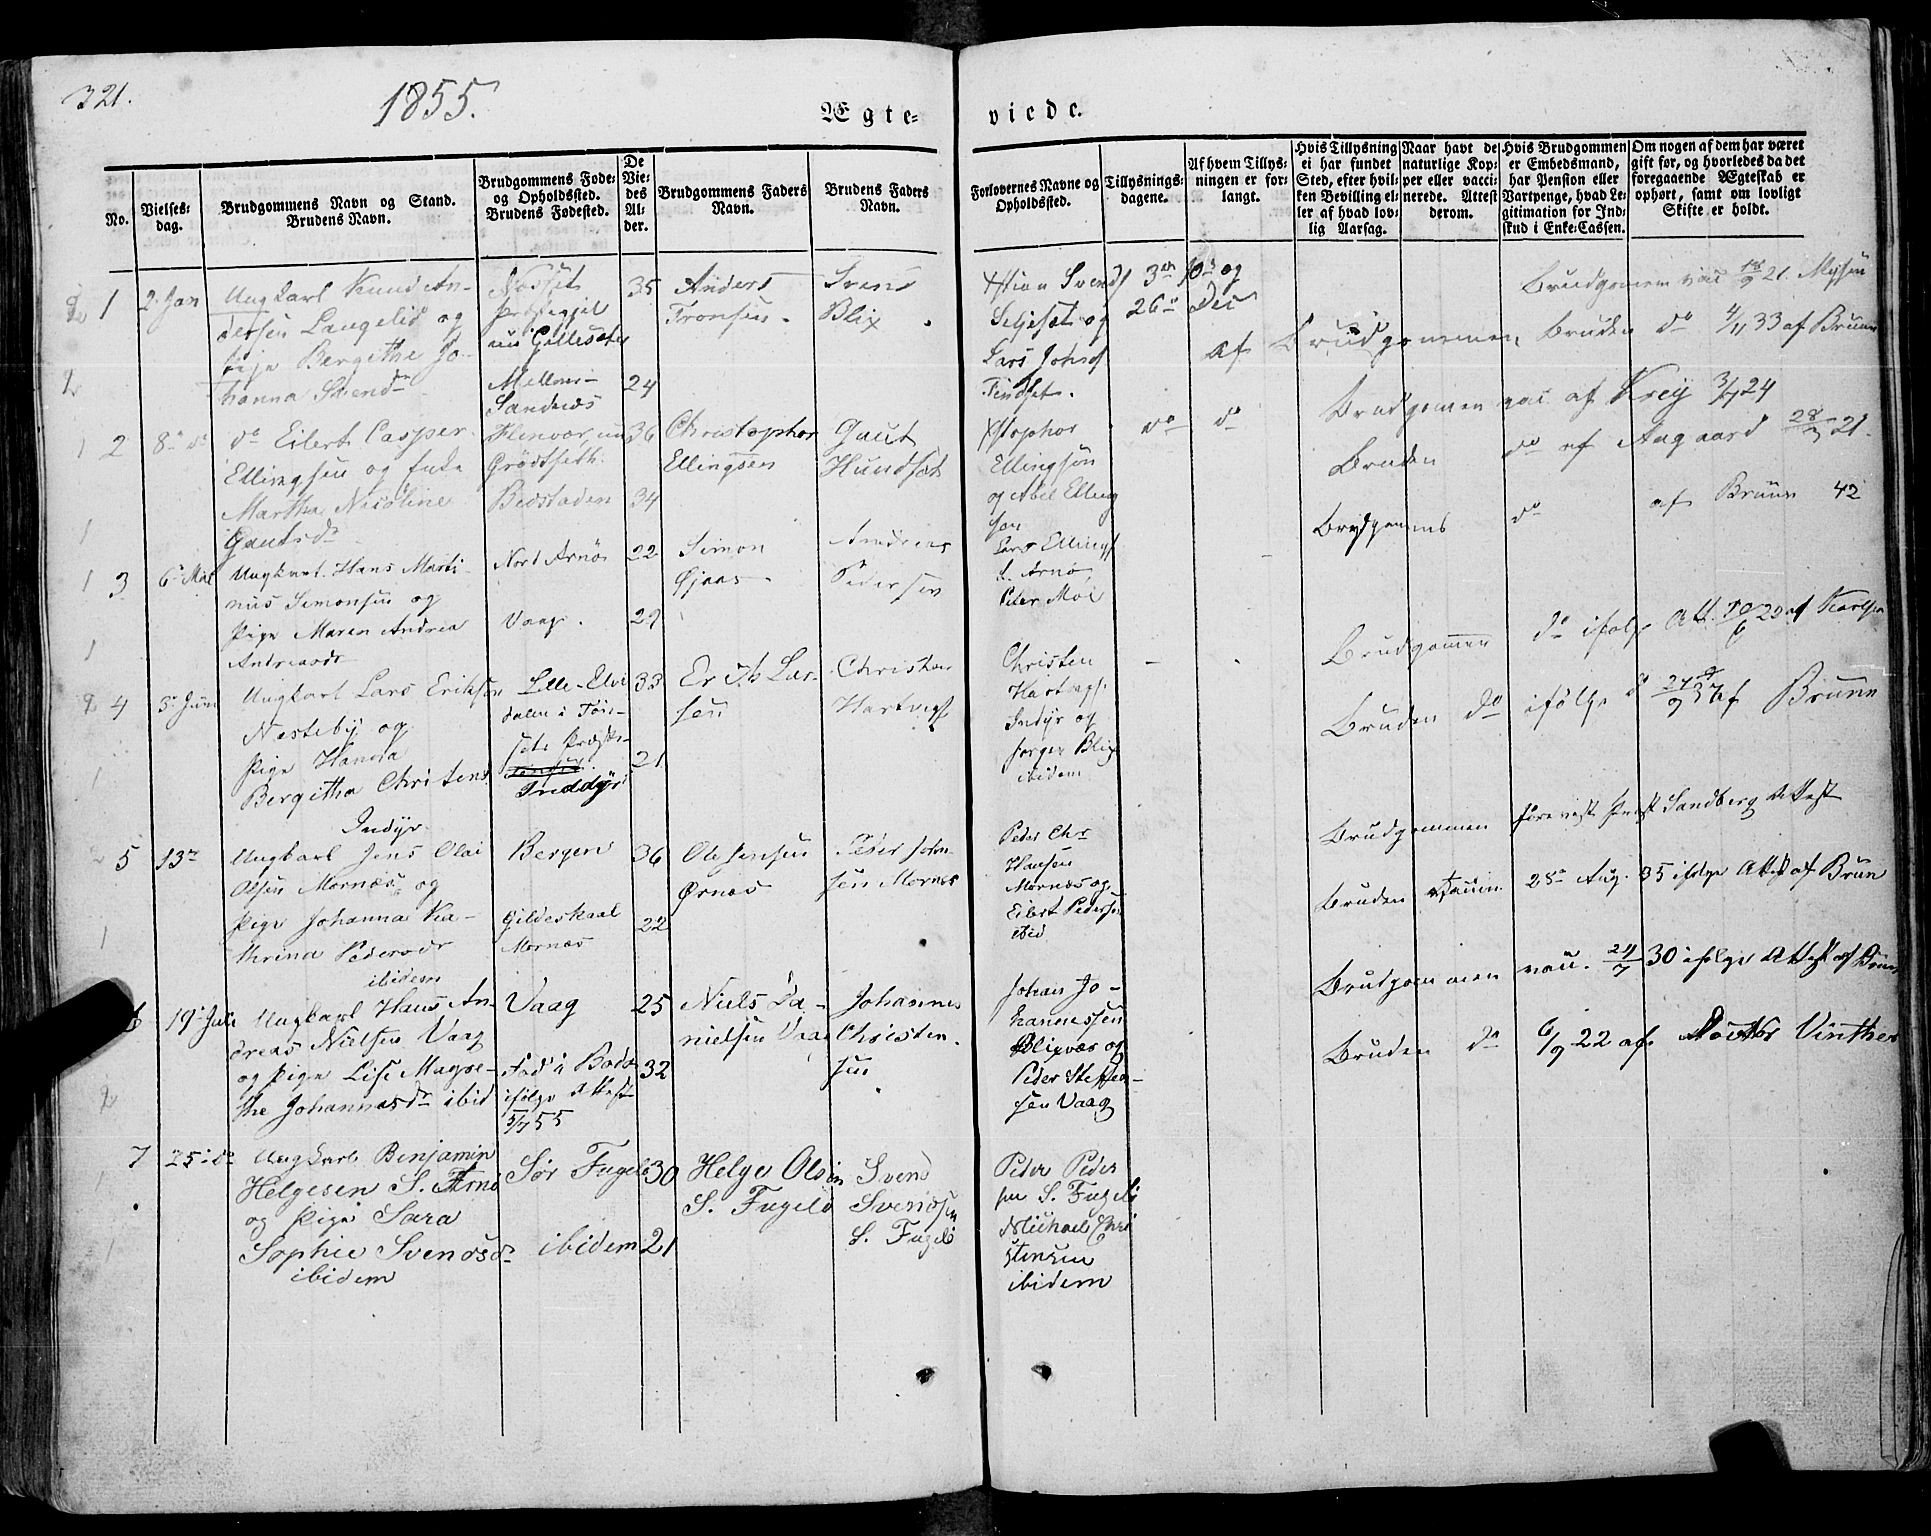 321.
1855.
Ægte-
viede.
No.
Vielses-
dag.
Brudgommens Navn og Stand.
Brudens Navn.
Brudgommens Føde-
og Opholdssted.
Brudens Fødested.
De
Vie-
des
Al-
der.
Brudgommens Faders
Navn.
Brudens Faders
Navn.
Forlovernes Navne og
Opholdssted.
Tillysnings-
dagene.
Af hvem Tillys-
ningen er for-
langt.
Hvis Tillysning
ei har fundet
Sted, efter hvil-
ken Bevilling el-
ler af hvad lov-
lig Aarsag.
Naar havt de
naturlige Kop-
per eller vacci-
nerede. Attest
derom.
Hvis Brudgommen
er Embedsmand,
har Pension eller
Vartpenge, hvad Le-
gitimation for Ind-
skud i Enke-Cassen.
Om nogen af dem har været
gift før, og hvorledes da det
foregaaende Ægteskab er
ophørt, samt om lovligt
Skifte er holdt.
1
2. Jan
Ungkarl Knud An-
dersen Langelid og
Pige Bergithe Jo-
hanna Svendd
35
24
Sandnæs
Anders
Tronsen.
Svend
Blix.
Xstian Svends
Seljeset og
Lars Johns
Findset.
3die 10de og
26de Dec
af Brudgommen
Brudgomen vac 21. Mysen
Bruden do 4/11 33 af Bruun
2
8de do
do Eilert Casper
Ellingsen og Enke
Martha Nicoline
Gautsd
Flenvær, nu
Grødtseth.
Bedstaden
36
34
Christopher
Ellingsen
Gaut
Hundset
Xstopher
Ellingsøn
og Abel Elling
søn
do do
Brudgomen vac af Krey 3/7 24
Bruden do af Aagaard 28/7 21.
3
6. Mai
Ungkarl. Hans Marti-
nus Simonsen og
Pige Maren Andrea
Andreasdr
Nord Arnø
Vaag.
22
29
Simon
Øjaas.
Andreas
Pedersen
Lars Ellings
S. Arnø,
Peter Moe
Brudgomens do af Bruun 42
4
3. Juni
Ungkarl Lars Eriksen
Nesteby og
Pige Hanna
Bergitha Christens
Indyr
Lille-Elve
dalen i Tøn-
sets Præste-
Inddyr
33
21
Erik Lar-
sen
Christen
Hartvigs
Christen
Hartvigs.
Indyr og
Jørgen Blix
ibidem
Brudgomen do ifølge Att. 10/6 20 af Karlsen
Bruden do ifølge do 27/9 37 af Brunn
5
13de
Ungkarl Jens Olai
Olsen Mornæs og
Pige Johanna Ka-
thrina Pedersdr
ibidem
Bergen
Gildeskaal
Mornæs
36
22
Ole Jensen
Ørnæs
Peder John-
sen Mornæs
Peder Chr
Hansen
Mornæs og
Eilert Pedersen
ibid
Brudgommen forevist Præst Sandberg Attest
Bruden vaccin 25de Aug. 35 ifølge Attest af Brun
6
19. Juli
Ungkarl Hans An-
dreas Nielsen Vaag
og Pige Lise Marge-
the Johannesdr ibid
Vaag
Fød i Bodø
ifølge Attest
5/7 55
25
32
Niels Da-
nielsen Vaag
Johannes
Christen-
sen
Johan Jo-
hannessen
Blixvær og
Peder Steffen-
sen Vaag
Brudgommen vacc. 24/7 30 ifølge Attest af Bruun
Bruden do 6/9 22 af Vinther
7
25. do
Ungkarl Benjamin
Helgesen S. Arnø
og Pige Sara
Sophie Svendsdr
ibidem
Sør Fugelø
ibidem
30
21
Helge Olsen
S. Fugelø
Svend
Svendsen
S. Fugelø
Peder Peder
sen S. Fugelø
Michael Chri
stensen
ibidem